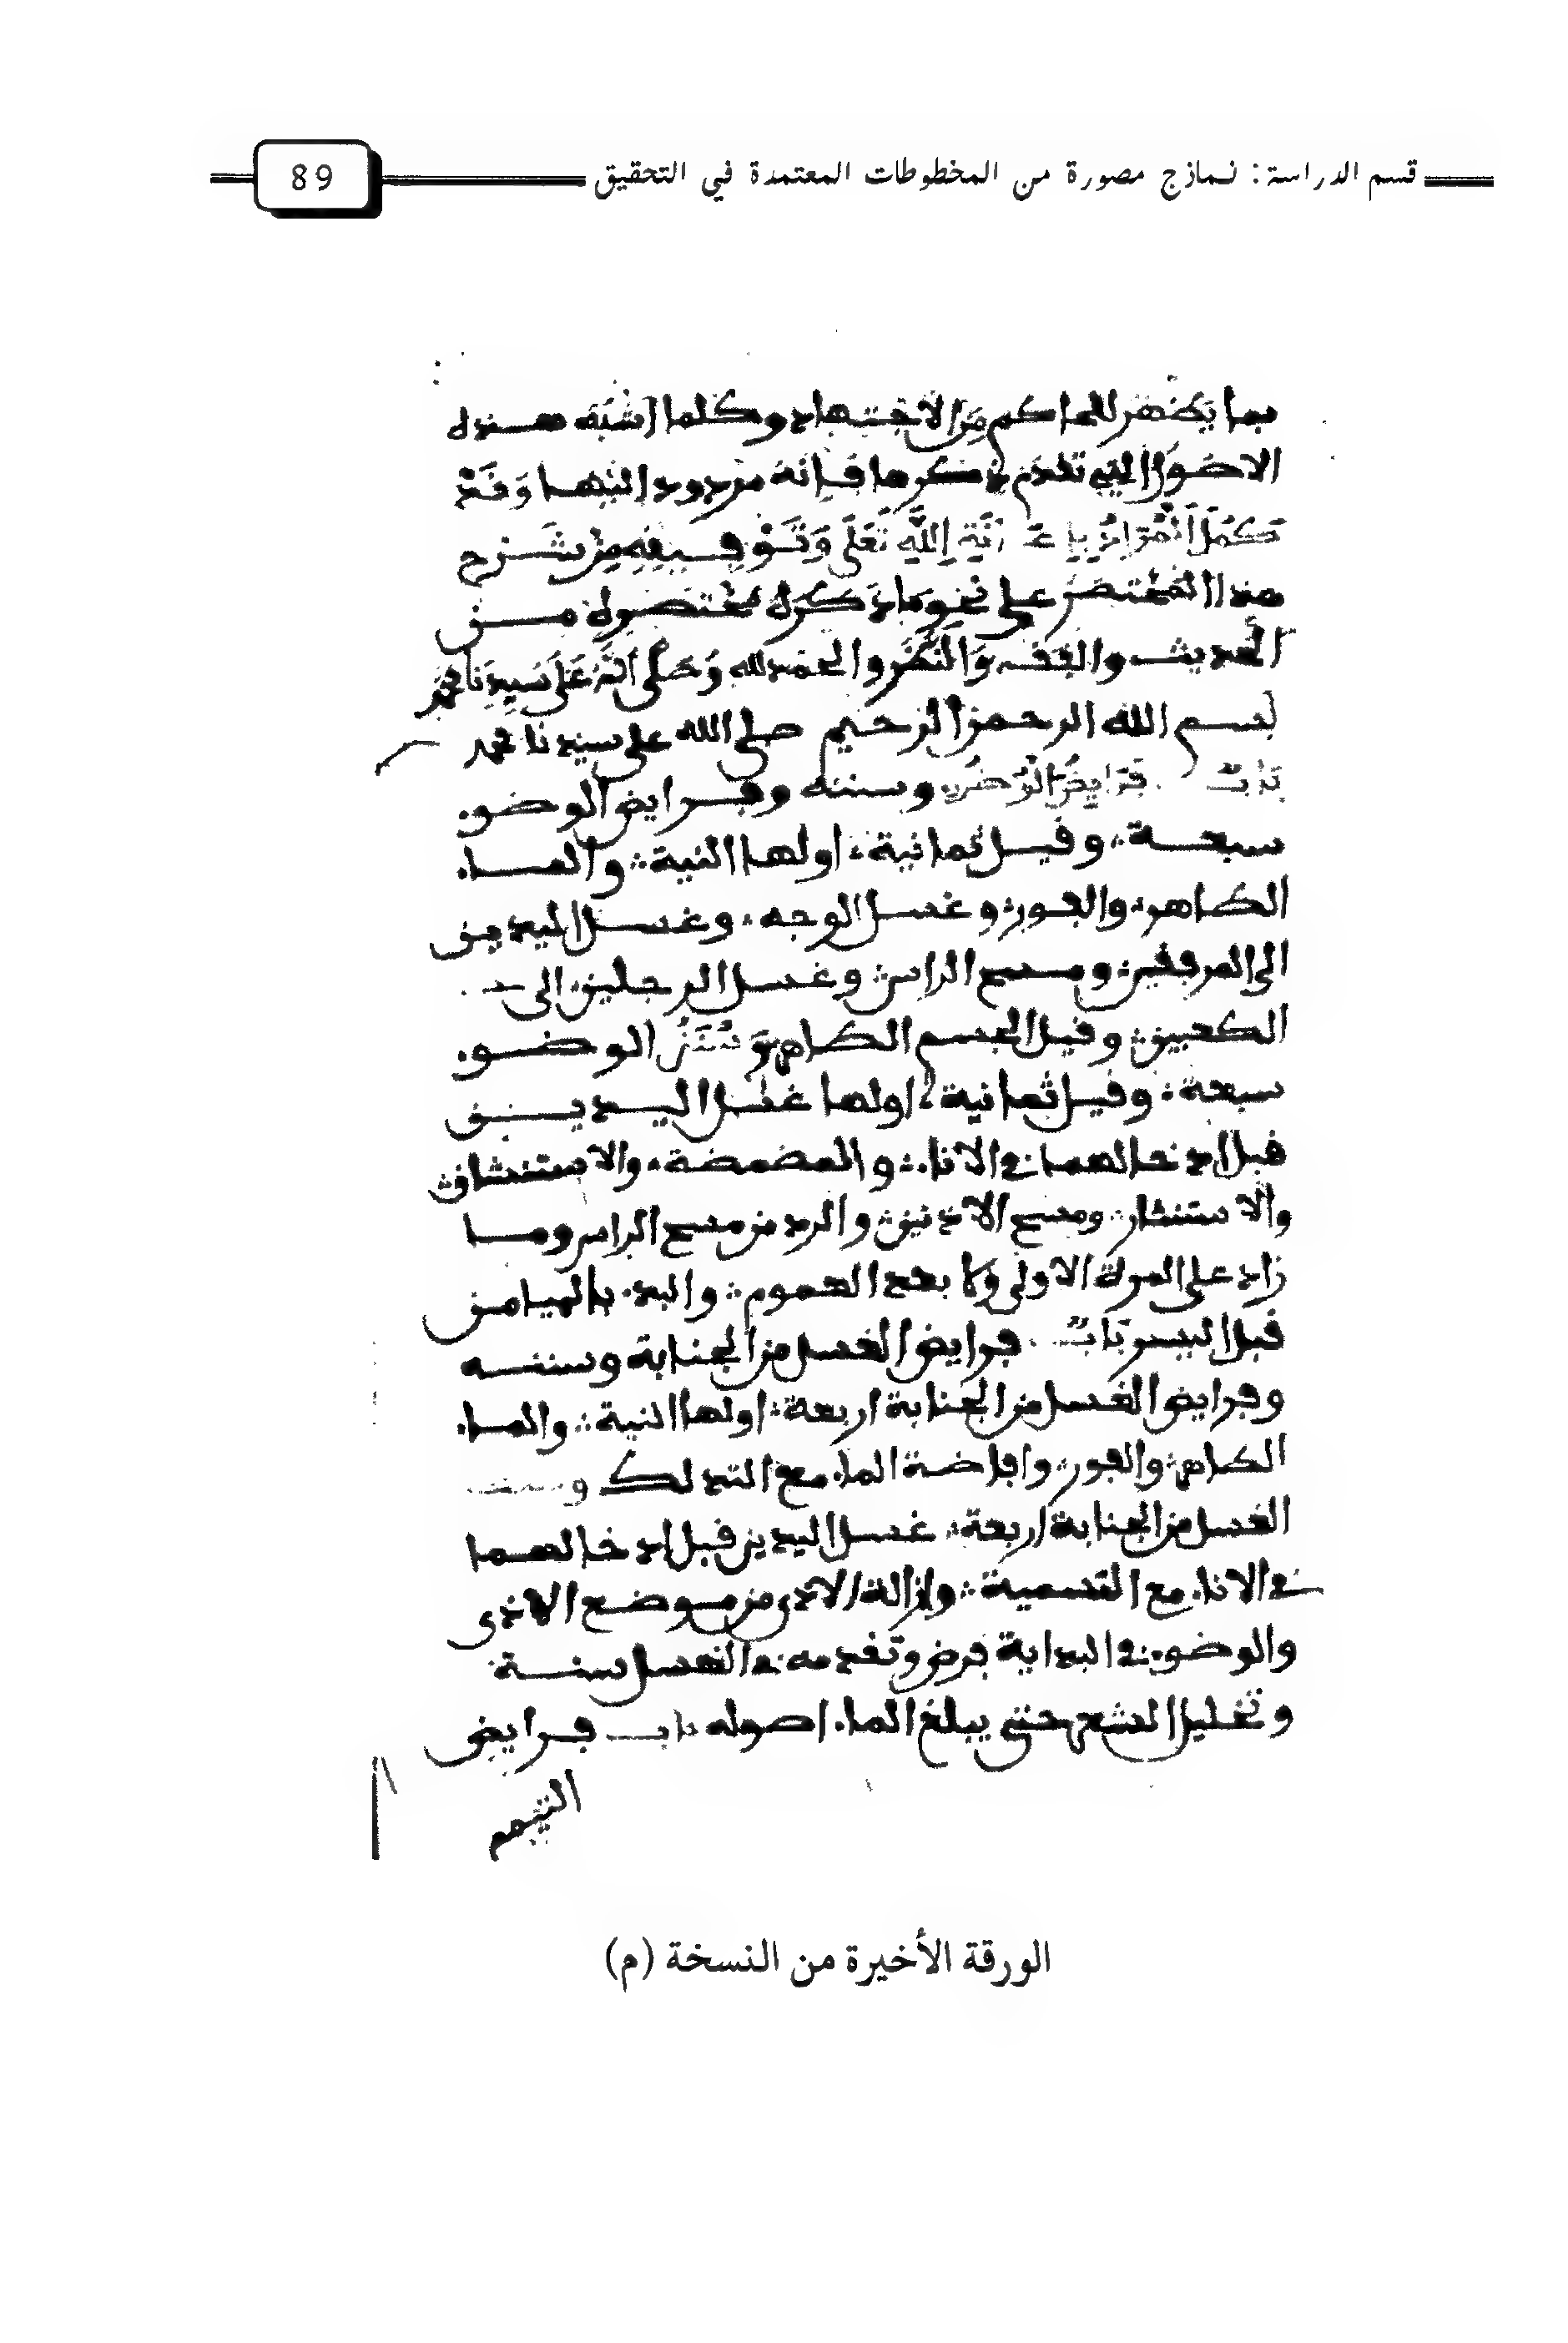 قسم الدراسة: نماذج مصورة من المخطوطات المعتمدة في التحقيق
89
بما يظهر للحاكم من الاجتهاد وكلما اشبه هذه
الاصول التي تقدم ذكرها فإنه مردود اليها وقد
كمل الله تعلى وتوفيقه من شرح
هذا المختصر على نحو ما ذكره مختصره من
الحديث والفقه والنظر والحمد لله وصلى الله على سيدنا محمد
بسم الله الرحمن الرحيم صلى الله على سيدنا محمد
باب فرايض الوضوء وسننه وفرايض الوضوء
سبعة وقيل ثمانية اولها النية والماء
الطاهر والفور وغسل الوجه وغسل اليدين
الى المرفقين ومسح الراس وغسل الرجلين الى
الكعبين وقيل الجسم الطاهر وسنن الوضوء
سبعة وقيل ثمانية اولها غسل اليدين
قبل ادخالهما في الاناء والمضمضة والاستنشاق
والاستنثار ومسح الاذنين والرد من مسح الراس وما
زاد على المرة الاولى ولا بعد العموم والبدء بالميامن
قبل اليسر باب فرايض الغسل من الجنابة وسننه
وفرايض الغسل من الجنابة اربعة اولها النية والماء
الطاهر والفور وافاضة الماء مع التدلك وسنن
الغسل من الجنابة اربعة غسل اليدين قبل ادخالهما
في الاناء مع التسمية وازالة الاذى من موضع الاذى
والوضوء في البداية فرض وتقدمه في الغسل سنة
وتخليل الشعر حتى يبلغ الماء اصوله باب فرايض
التيمم
الورقة الأخيرة من النسخة (م)